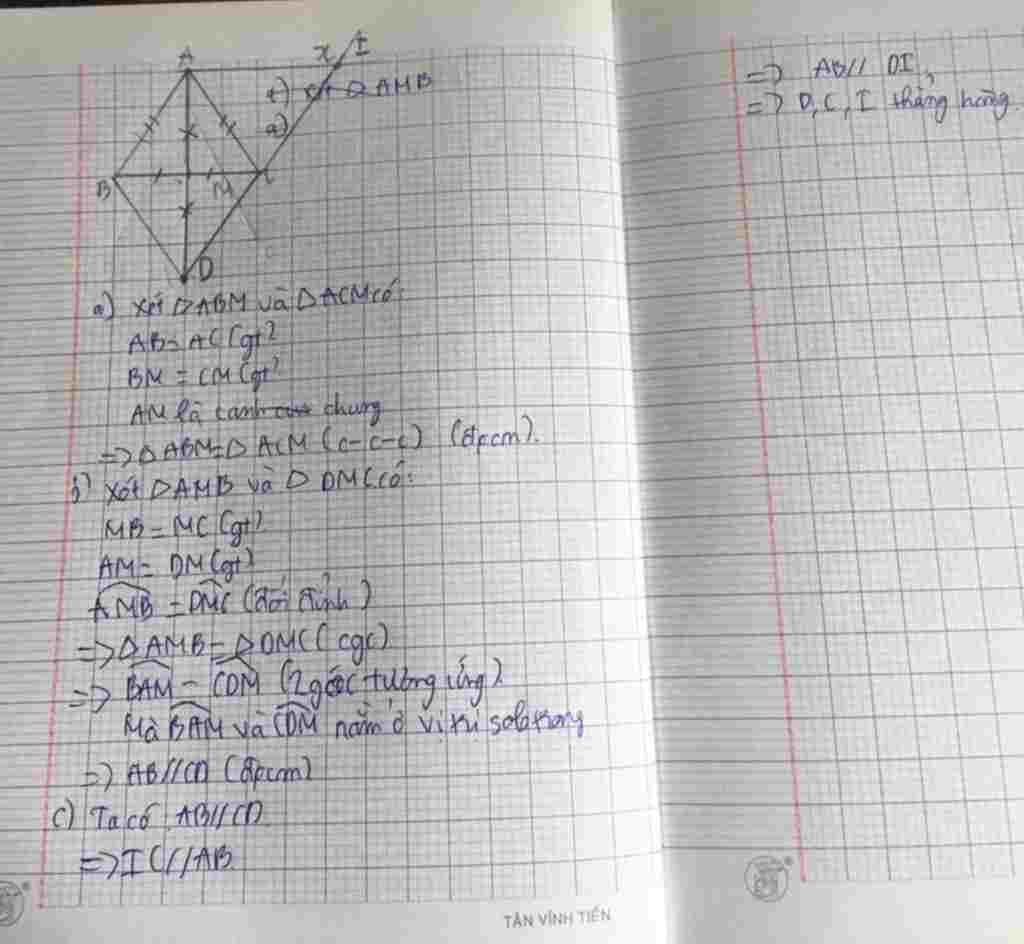 A
x I
B
M
C
D
a) Xét ΔABM và ΔACM có:
AB = AC (gt)
BM = CM (gt)
AM là cạnh chung
=> ΔABM = ΔACM (c-c-c) (đpcm).
b) Xét ΔAMB và Δ DMC có:
MB = MC (gt)
AM = DM (gt)
AMB = DMC (đối đỉnh)
=> ΔAMB = ΔDMC (cgc)
=> BAM = CDM (2 góc tương ứng)
Mà BAM và CDM nằm ở vị trí sole trong
=> AB//CD (đpcm)
c) Ta có AB//CD
=> IC//AB
TÂN VĨNH TIẾN
=> AB// DI,
=> D, C, I thẳng hàng.